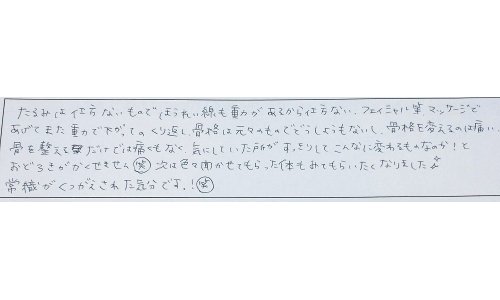 たるみは仕方ないものでほうれい線も重力があるから仕方ない、フェイシャル等マッサージで
あげてまた重力で下がってのくり返し、骨格は元々のものでどうしようもないし、骨格を変えるのは痛い、
骨を整えるだけでは痛くもなく、気にしていた所がすっきりしてこんなに変わるものなのか！と
おどろきがかくせません(笑) 次は色々聞かせてもらった体もみてもらいたくなりました
常識がくつがえされた気分です。！(笑)